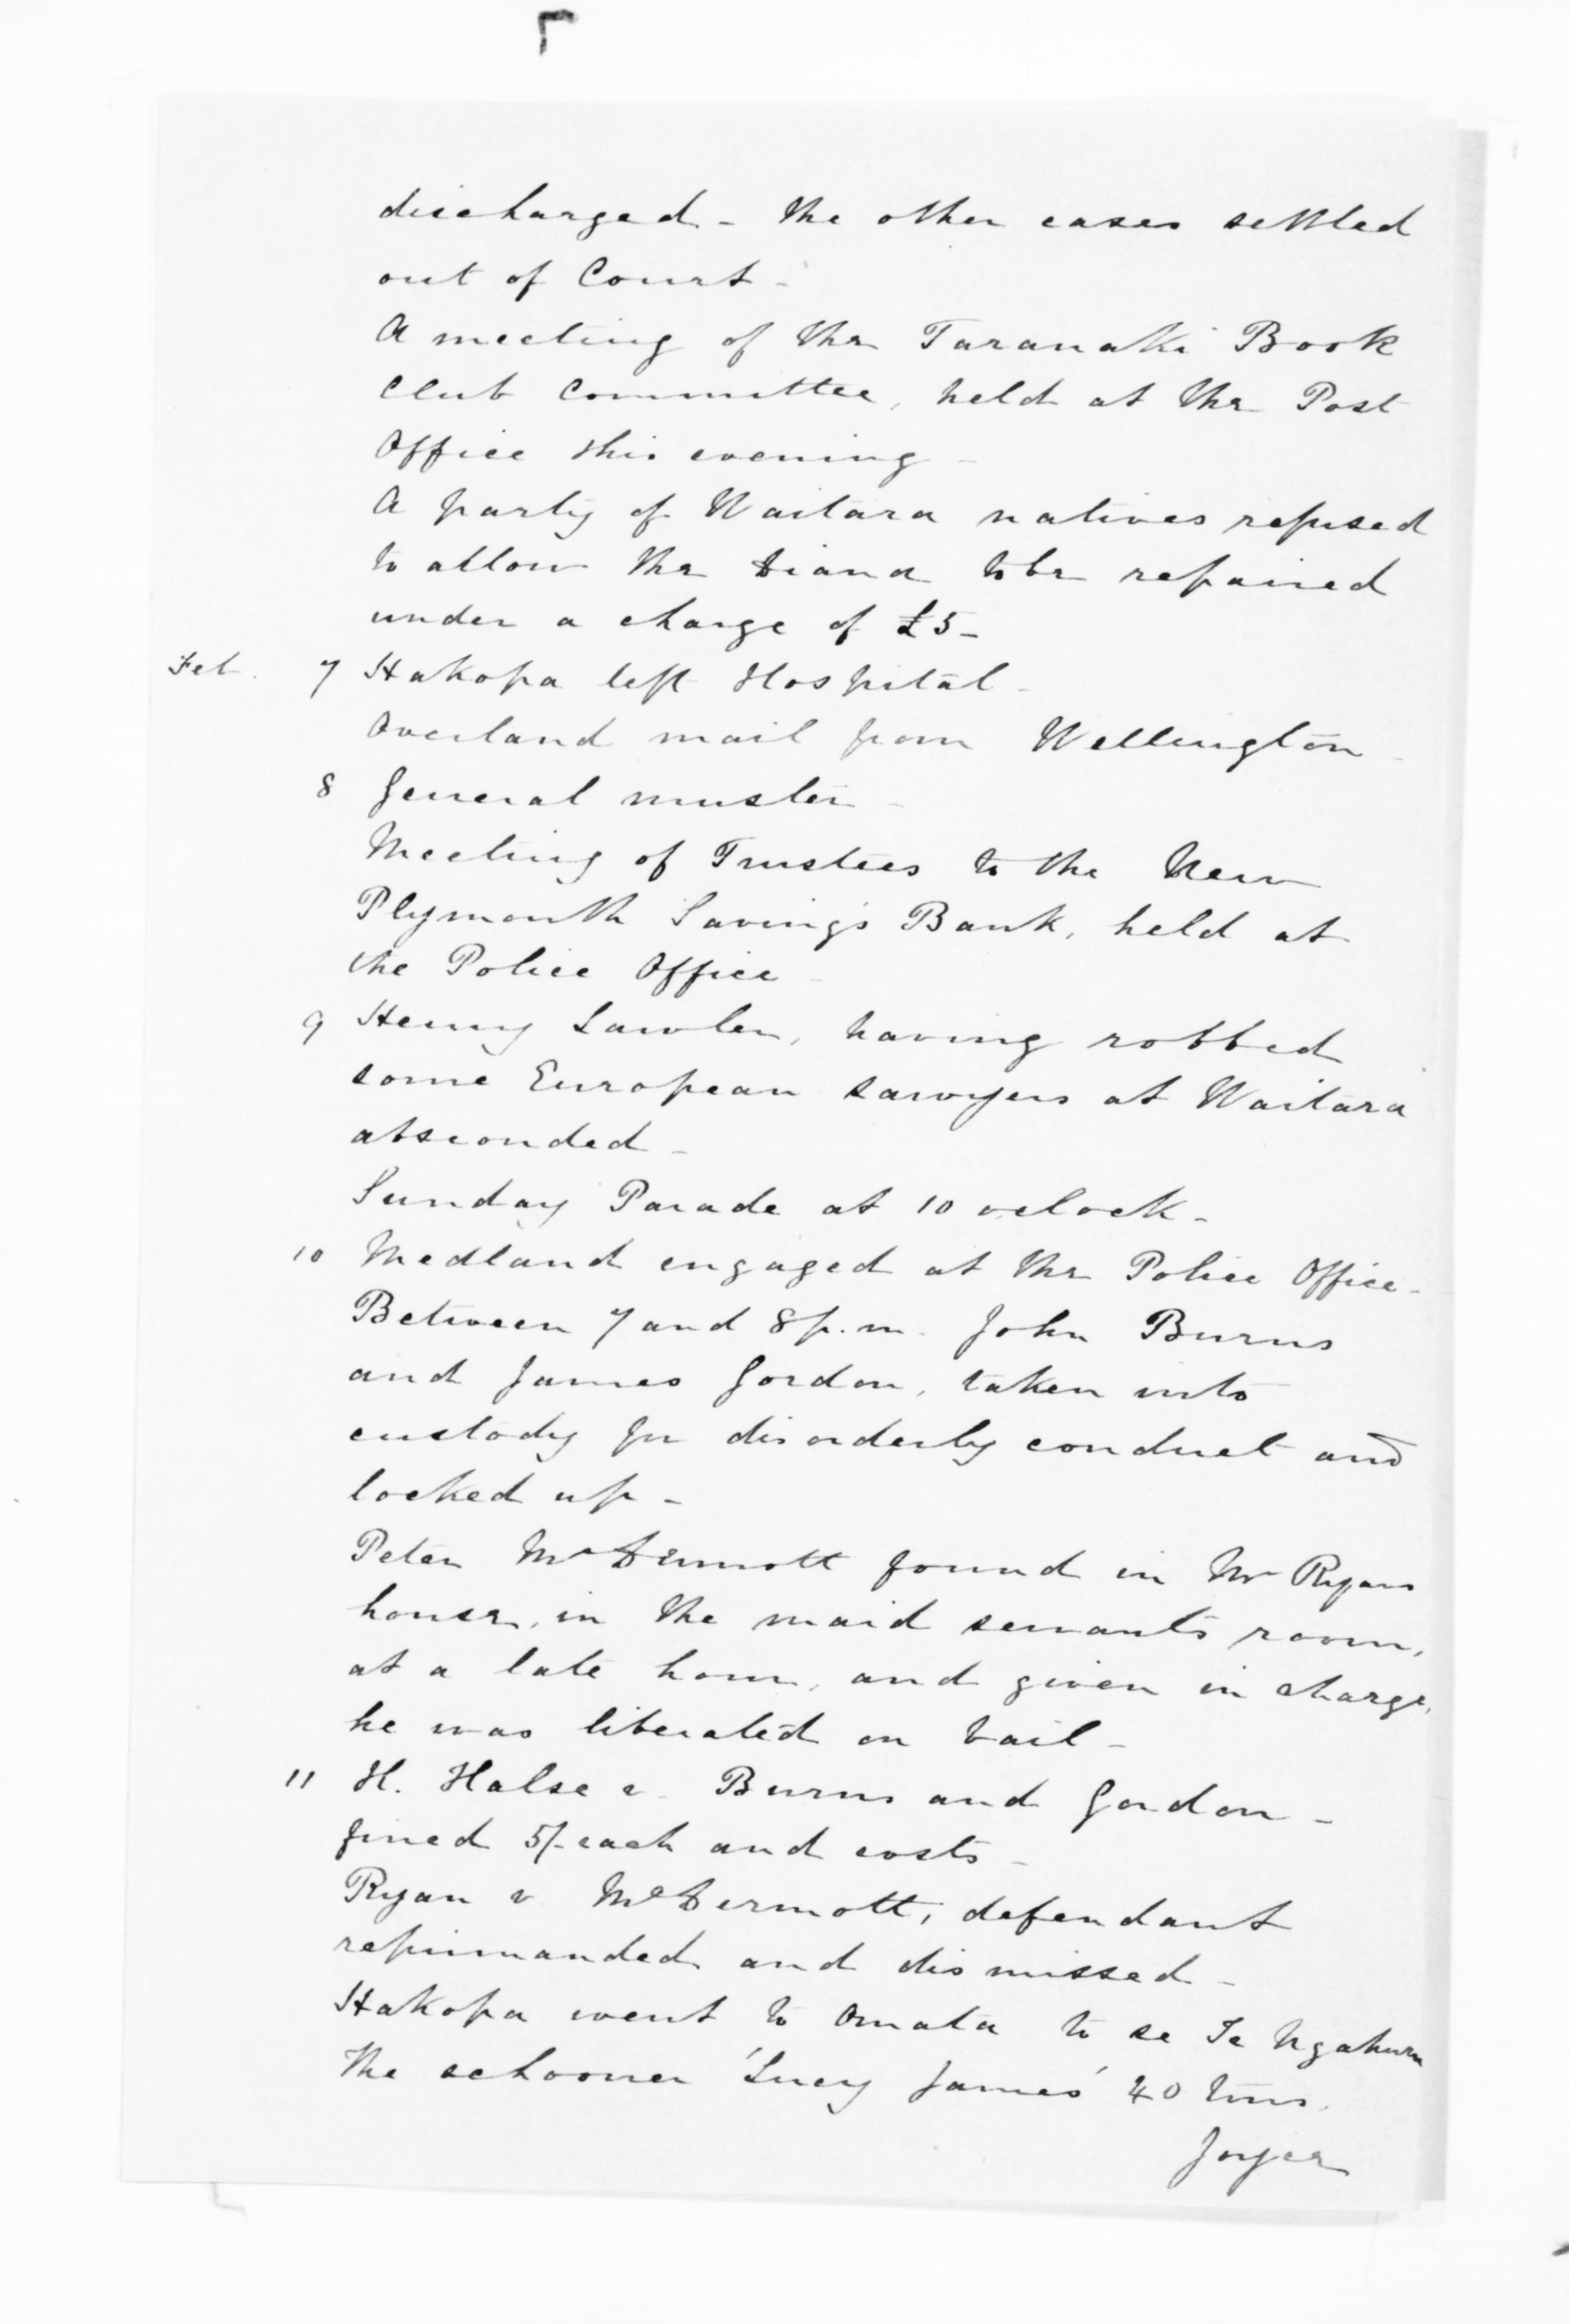 discharged - the other cases settled
out of Court -
A meeting of the Taranaki Book
Club Committee, held at the Post
Office this evening -
A party of Waitara natives refused
to allow the Diana to be repaired
under a charge of £5 -
Feb. 7 Hakopa left Hospital -
Overland mail from Wellington -
8 General muster -
Meeting of Trustees to the New
Plymouth Saving's Bank, held at
the Police Office -
9 Henry Lawler, having robbed
some European sawyers at Waitara
absconded -
Sunday Parade at 10 oclock -
10 Medland engaged at the Police Office -
Between 7 and 8 p.m. John Burns
and James Gordon, taken into
custody for disorderly conduct and
locked up -
Peter McDermott found in Mr Ryans
house, in the maid servants room,
at a late hour, and given in charge,
he was liberated on bail -
11 H. Halse v. Burns and Gordon -
fined 5/- each and costs -
Ryan v McDermott, defendant
reprimanded and dismissed -
Hakopa went to Omata to se Te Ngahuru
The schooner 'Lucy James' 40 tons.
Joyce